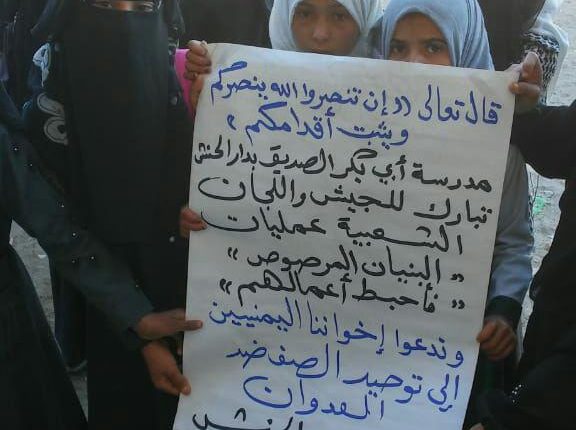 قال تعالى «وإن تنصروا الله ينصركم
ويثبت أقدامكم»
مدرسة أبي بكر الصديق بدار الحنش
تبارك للجيش واللجان
الشعبية عمليات
«البنيان المرصوص»
«فأحبط أعمالهم»
وندعوا إخواننا اليمنيين
إلى توحيد الصف ضد
العدوان